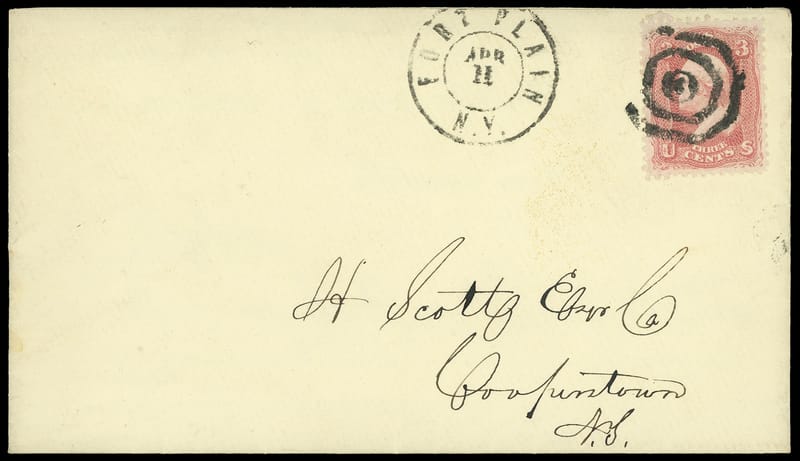 FORT PLAIN
APR
11
N.Y.
3
U S
THREE
CENTS
H Scott Esqr Co
Cooperstown
N.Y.